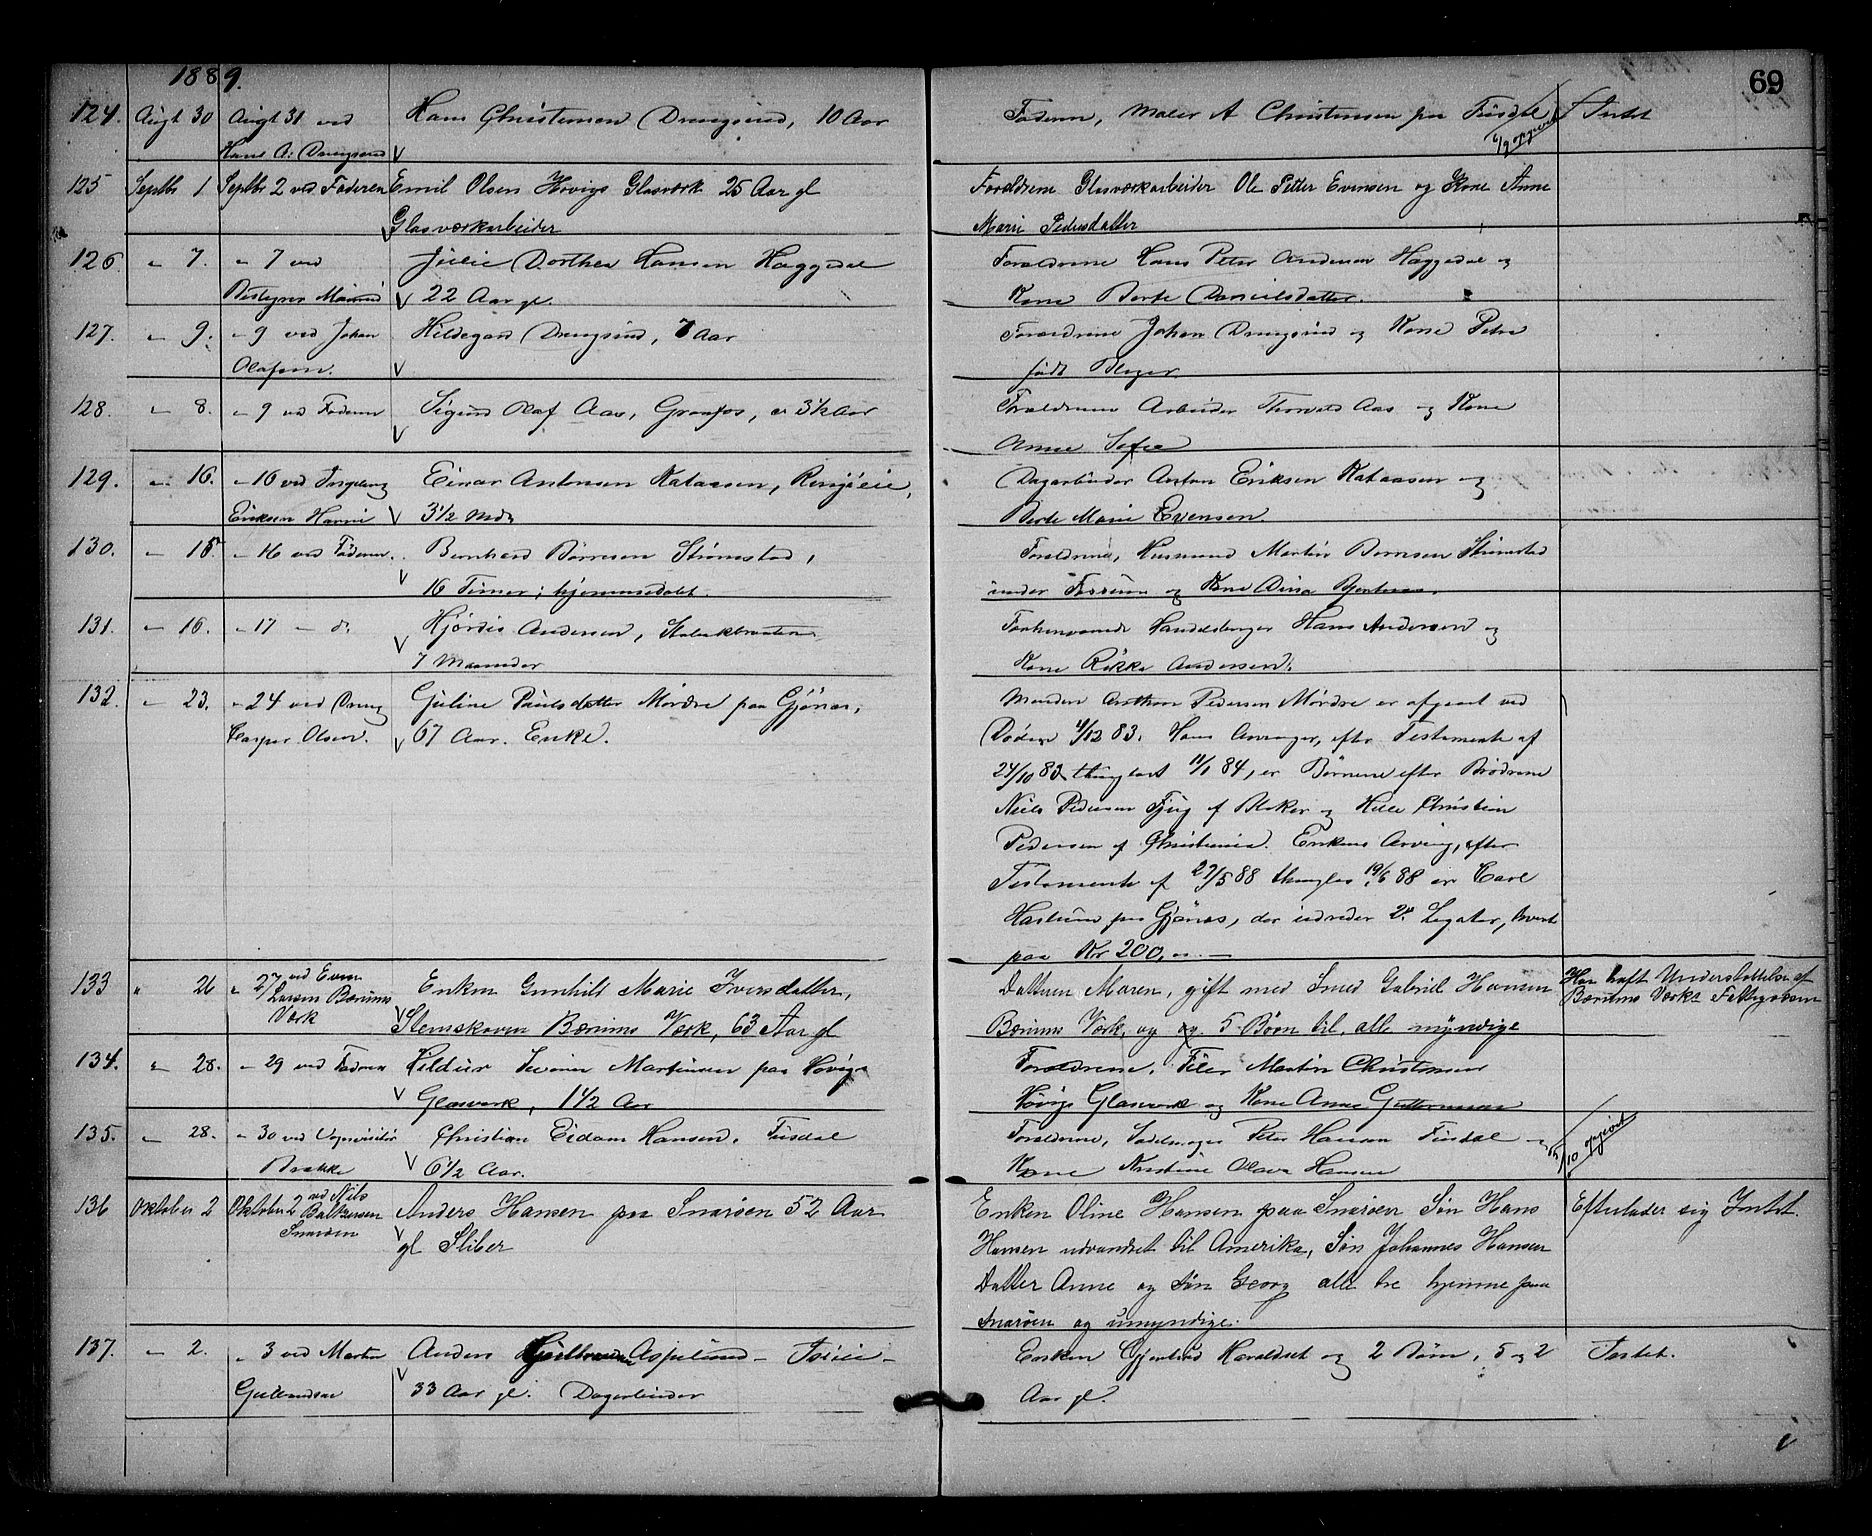 1889.
69
124. Augt 30 Augt 31 ved Hans Christensen Drengsrud, 10 Aar Faderen, Maler A Christensen paa Tusdal Intet
Hans A: Drengsrud 1/9 opgivet
125 Septbr 1 Septbr 2 ved Faderen Emil Olsen Hövigs Glasværk 25 Aar gl Forældrene Glasværkarbeider Ole Petter Evensen og Kone Anne
Glasværkarbeider Marie Pedersdatter
126. " 7. " 7 ved Julie Dorthea Hansen Haggedal Forældrene Hans Peter Andersen Haggedal og
Bestyrer 22 Aar gl. Kone Berte Danielsdatter.
127. " 9. " 9 ved Johan Hildegard Drengsrud, 7 Aar Forældrene Johan Drengsrud og Kone Petra
Olafsen. født
128. " 8. " 9 ved Faderen Sigurd Olaf Aas, Granfos, 3½ Aar Forældrene Arbeider Thorvald Aas og Kone
Anne Sofie
129. " 16. " 16 ved Ingeborg Einar Antonsen Kataasen, Ringieie, Dagarbeider Anton Eriksen Kataasen og
Eriksen 3½ Mdr Berte Marie Evensen.
130. " 15. " 16 ved Faderen. Bernhard Børresen Strømstad, Forældrene, Husmand Martin Børresen Strømstad
16 Timer; hjemmedøbt. under Fossum og Kone Dina
131. " 16. " 17 — do Hjørdis Andersen, Stabekbraaten Forhenværende Handelsborger Hans Andersen og
7 Maaneder Kone Rikke Andersen.
132. " 23. " 24 ved Dreng Guline Paulsdatter Mördre paa Gjönæs, Manden Anthon Pedersen Mördre er afgaaet ved
Casper Olsen. 67 Aar. Enke. Døden 4/12 83. Hans Arvinger, efter Testamente af
24/10 83 thinglæst 11/1 84, er Børnene efter Brødrene
Niels Pedersen af Blaker og Helle Christian
Pedersen af Christiania. Enkens Arving, efter
Testamente af 27/5 88 thinglæst 19/6 88 er Carl
Haslum paa Gjönæs, der udreder 2de Legater, hvert
paa Kr 200,00. —
133 " 26 " 27 ved Even Enken Gunhild Marie Iversdatter, Datteren Maren, gift med Smed Gabriel Hansen Har havt Understøttelse af
Larsen Bærums Værk Stenskoven Bærums Værk, 63 Aar gl Bærums Værk, og og 5 Børn til, alle myndige Bærums Værks Fattigvæsen
134. " 28. " 29 ved Faderen Hildur Martinsen paa Hövigs Forældrene, Filer Martin Christensen
Glasværk, 1½ Aar Hövigs Glasværk og Kone Anne Guttormsen
135. " 28. " 30 ved Vognvisitör Christian Eidam Hansen. Tusdal Forældrene, Sadelmager Peter Hansen Tusdal og
Brække 6½ Aar. Kone Kristine Olava Hansen 5/10 opgivet
136 Oktober 2 Oktober 2 ved Nils Anders Hansen paa Snarøen 52 Aar Enken Oline Hansen paa Snarøen Søn Hans Efterlader sig Intet.
Baltzersen Snarøen gl Sliber Hansen udvandret til Amerika, Søn Johannes Hansen
Datter Anne og søn Georg alle tre hjemme paa
Snarøen og umyndige.
137. " 2. " 3 ved Morten Anders Gulbrandsen Aspelund — Enken Gjertrud Haraldset og 2 Børn, 5 og 2 Intet.
Gulbrandsen 33 Aar gl. Dagarbeider Aar gl.